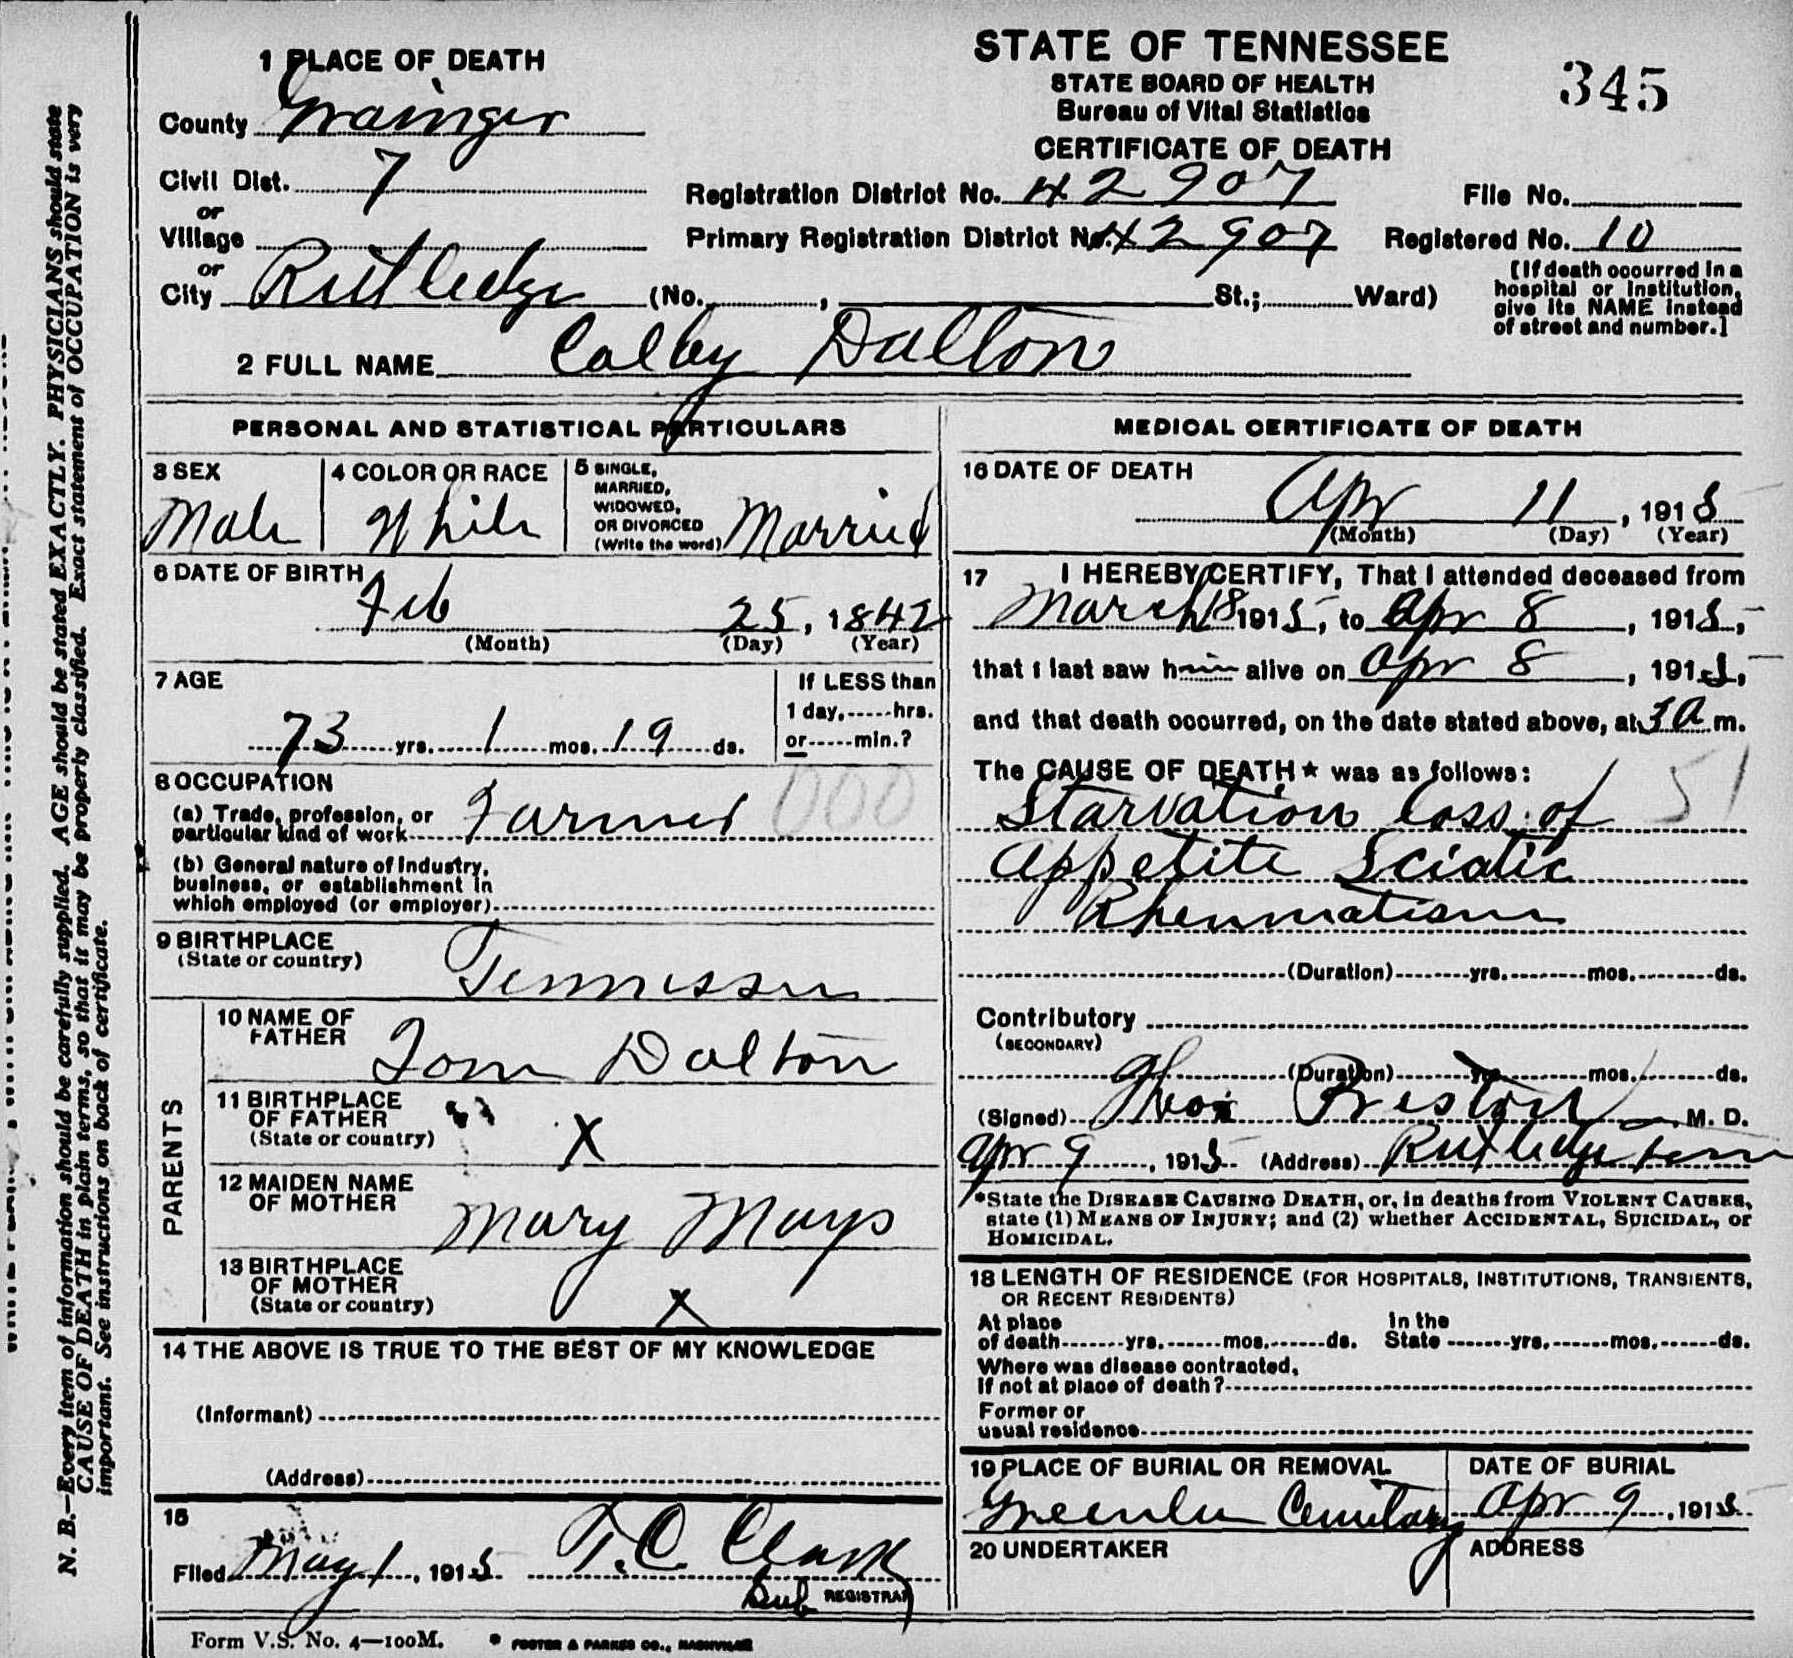 STATE OF TENNESSEE
STATE BOARD OF HEALTH
Bureau of Vital Statistics
CERTIFICATE OF DEATH
345
1 PLACE OF DEATH
County Grainger
Civil Dist. 7
or
Village
or
City Rutledge (No. , St.; Ward)
Registration District No. 42907 File No.
Primary Registration District No. 42907 Registered No. 10
[If death occurred in a
hospital or institution,
give its NAME instead
of street and number.]
2 FULL NAME Colby Dalton
PERSONAL AND STATISTICAL PARTICULARS
3 SEX
Male
4 COLOR OR RACE
White
5 SINGLE,
MARRIED,
WIDOWED,
OR DIVORCED
(Write the word) Married
6 DATE OF BIRTH
Feb 25, 1842
(Month) (Day) (Year)
7 AGE
73 yrs. 1 mos. 19 ds.
If LESS than
1 day, hrs.
or min.?
8 OCCUPATION
(a) Trade, profession, or
particular kind of work Farmer 000
(b) General nature of industry,
business, or establishment in
which employed (or employer)
9 BIRTHPLACE
(State or country) Tennessee
PARENTS
10 NAME OF
FATHER Tom Dalton
11 BIRTHPLACE
OF FATHER
(State or country) X
12 MAIDEN NAME
OF MOTHER Mary Mays
13 BIRTHPLACE
OF MOTHER
(State or country) X
14 THE ABOVE IS TRUE TO THE BEST OF MY KNOWLEDGE
(Informant)
(Address)
15
Filed May 1, 1915 T. C. Clark
Sub REGISTRAR
MEDICAL CERTIFICATE OF DEATH
16 DATE OF DEATH
Apr 11, 1915
(Month) (Day) (Year)
17 I HEREBY CERTIFY, That I attended deceased from
March 18 1915, to Apr 8, 1915,
that I last saw him alive on Apr 8, 1915,
and that death occurred, on the date stated above, at 3 a m.
The CAUSE OF DEATH* was as follows:
Starvation loss of 51
appetite Sciatic
Rheumatism
(Duration) yrs. mos. ds.
Contributory
(SECONDARY)
(Duration) yrs. mos. ds.
(Signed) Preston M. D.
Apr 9, 1915 (Address) Rutledge Tenn
*State the DISEASE CAUSING DEATH, or, in deaths from VIOLENT CAUSES,
state (1) MEANS OF INJURY; and (2) whether ACCIDENTAL, SUICIDAL, or
HOMICIDAL.
18 LENGTH OF RESIDENCE (FOR HOSPITALS, INSTITUTIONS, TRANSIENTS,
OR RECENT RESIDENTS)
At place
of death yrs. mos. ds. In the
State yrs. mos. ds.
Where was disease contracted,
if not at place of death?
Former or
usual residence
19 PLACE OF BURIAL OR REMOVAL
Greenlee Cemetary
DATE OF BURIAL
Apr 9, 1915
20 UNDERTAKER
ADDRESS
Form V.S. No. 4—100M. FOSTER & PARKES CO., NASHVILLE
N. B.—Every item of information should be carefully supplied. AGE should be stated EXACTLY. PHYSICIANS should state
CAUSE OF DEATH in plain terms, so that it may be properly classified. Exact statement of OCCUPATION is very
important. See instructions on back of certificate.